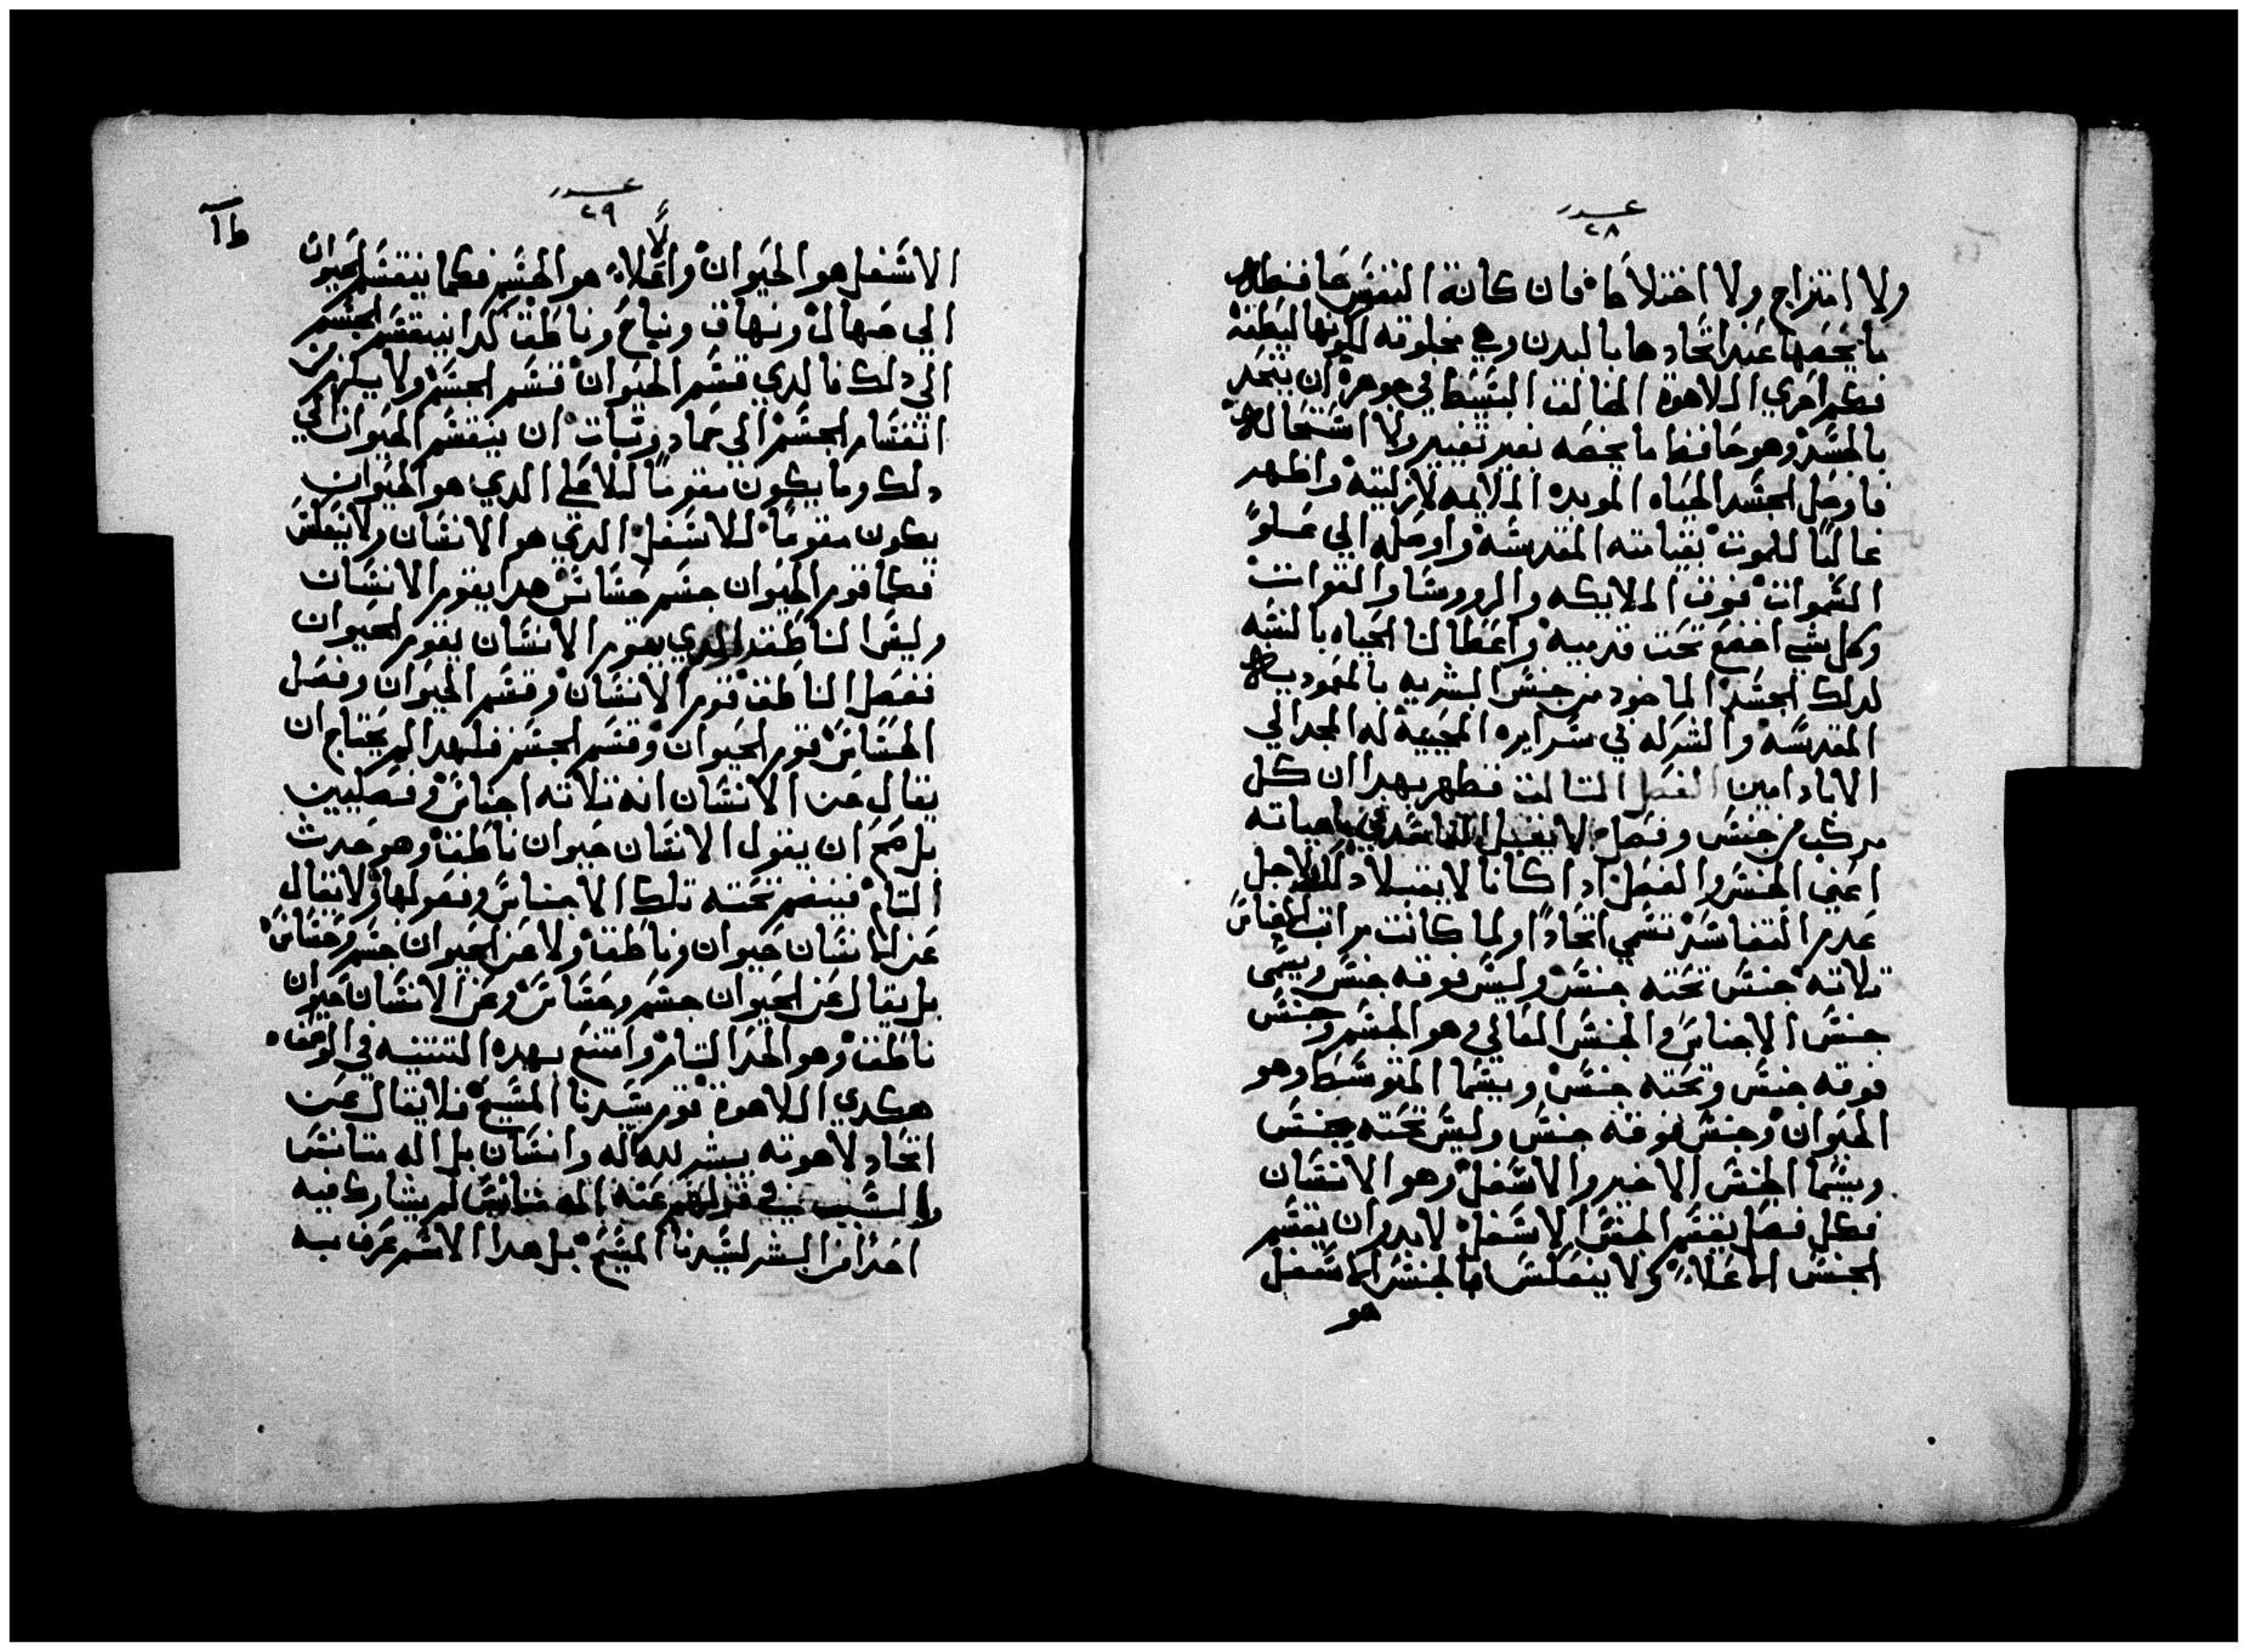 عدد
٢٨
ولا امتزاج ولا اختلاط فان كانة النفس حافظه
ما يخصها عند اتحادها بالبدن وهي مخلوقه لكونها لطيفة
فكم احري اللاهوة الخالق البسيط في جوهره ان يتحد
بالجسد وهو حافظ ما يخصه بغير تغيير ولا استحاله
فاوصل الجسد الحياه الموبده الملايمه لازليته واظهر
غالبًا للموت بقيامته المقدسه واوصله الي علو
السموات فوق الملايكه والرووسا والقوات
وكل شي اخضع تحت قدميه واعطا لنا الحياه بالنسبه
لدلك الجسد الماخود من جنس البشريه بالمعموديه
المقدسه والشركه في سرايره المحييه له المجد الي
الاباد امين الفصل التالت فظهر بهدا ان كل
مركب من جنس وفصل لا يقبل التفاسد في ماهياته
اعني الجنس والفصل ادا كانا لا يقبلا دلك لاجل
عدم التفاسد تسمي اتحادًا ولما كانت مراتب الاجناس
تلاته جنس تحته جنس وليس فوقه جنس ويسمى
جنس الاجناس والجنس العالي وهو الجسم وجنس
فوقه جنس وتحته جنس ويسما المتوسط وهو
الحيوان وجنس فوقه جنس وليس تحته جنس
ويسما الجنس الاخير والاسفل وهو الانسان
فكل فصل يقسم الجنس الاسفل لابد وان يقسم
الجنس الاعلاء ولا ينعكس فالجنس الاسفل
هو
عدد
٢٩
الاسفل هو الحيوان واعلاء هو الجسم فكما ينقسم الحيوان
الي صهال ونهاق ونباح وناطق كدا ينقسم الجسم
الي دلك فالدي قسم الحيوان قسم الجسم ولا يلزم من
انقسام الجسم الي جماد ونبات ان ينقسم الحيوان الي
دلك وما يكون مقومًا للاعلي الدي هو الحيوان
يكون مقومًا للاسفل الدي هو الانسان ولا ينعكس
فكما قوم الحيوان جسم حساس هدا يقوم الانسان
وليس الناطق الدي يقوم الانسان يقوم الحيوان
ففصل الناطق قوم الانسان وقسم الحيوان وفصل
الحساس قوم الحيوان وقسم الجسم فلهدا لم يحتاج ان
يقال عن الانسان انه تلاته اجناس وفصليين
بل صح ان يقول الانسان حيوان ناطق وهو حد
التام فينضم تحته تلك الاجناس وفصولها ولا يقال
عن الانسان حيوان وناطق ولا عن الحيوان جسم وحساس
بل يقال عن الحيوان جسم وحساس وعن الانسان حيوان
ناطق وهو الحد التام وامتنع بهده التتنيه في
هكدي اللاهوة قوم سيدنا المسيح فلا يقال عن
اتحاد لاهوته ببشريته اله وانسان بل اله متانس
والسبب في قولهم عنه اله متانس لم يشارك فيه
احدًا من البشر لسيدنا المسيح بل هدا الاسم عرف به